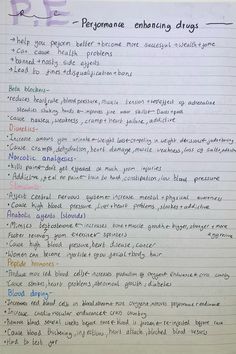 P.E
- Performance enhancing drugs -
→ help you perform better + become more successful → Wealth + fame
→ Can cause health problems
→ banned + nasty side effects
→ Lead to fines + disqualification + bans
Beta blockers -
• reduces heart rate, blood pressure, muscle tension + effect of adrenaline
steadies shaking hands → improves fine motor skills →
• Cause nausea, weakness, cramp + heart failure, addictive
Diuretics -
• Increase amount you urinate → weight loss →
• Cause cramps, dehydration, heart damage, muscle weakness, loss of salts,
Narcotic analgesics -
• kills pain → don't get effected as much from injuries
• Addictive, feel no pain → train too hard, constipation, low blood pressure
Stimulants
• Affect central nervous system → increase mental + physical awareness
• Cause high blood pressure, liver + heart problems, strokes + addictive
Anabolic agents (steroids)
• Mimics testosterone → increases bone + muscle growth → bigger, stronger + more
faster recovery from exercise → sprinters aggressive
• Cause high blood pressure, heart disease, cancer
• Women can become infertile + grow facial + body hair
Peptide hormones -
• Produce more red blood cells →
• Cause strokes, heart problems, abnormal growth + diabetes
Blood doping -
• Increases red blood cells in bloodstream → more oxygen to muscles →
• Increase cardiovascular endurance → cross country
• Remove blood several weeks before event → blood is frozen → re-injected before race
• Cause blood thickening, infections, heart attack, blocked blood vessels
• Hard to test for